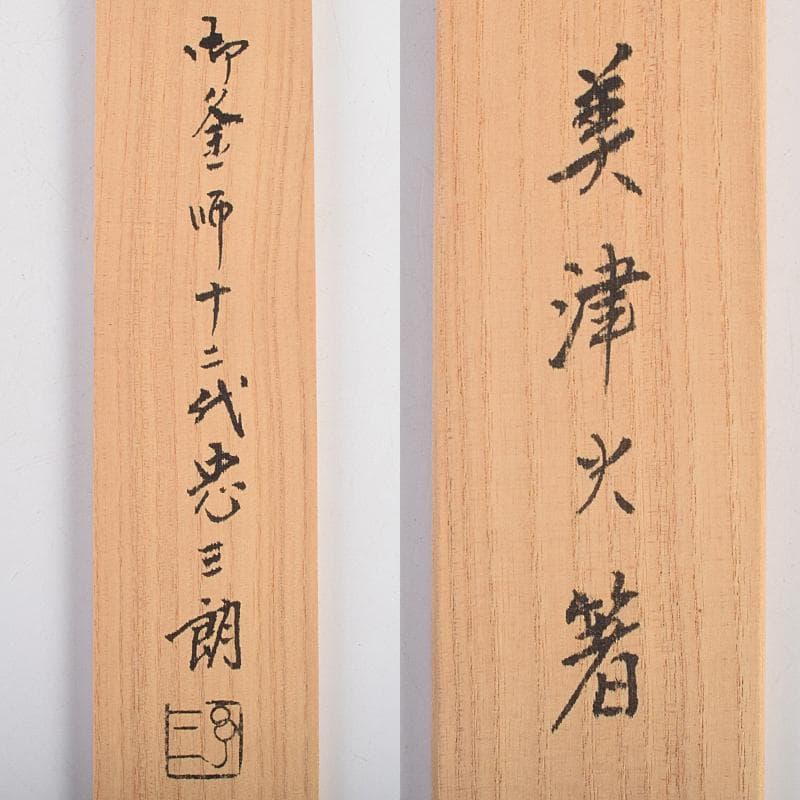 美津火箸
御釜師十二代忠三朗